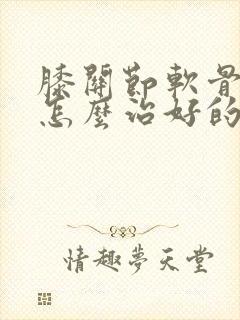 膝關節軟骨
怎麼治好的
情趣夢天堂